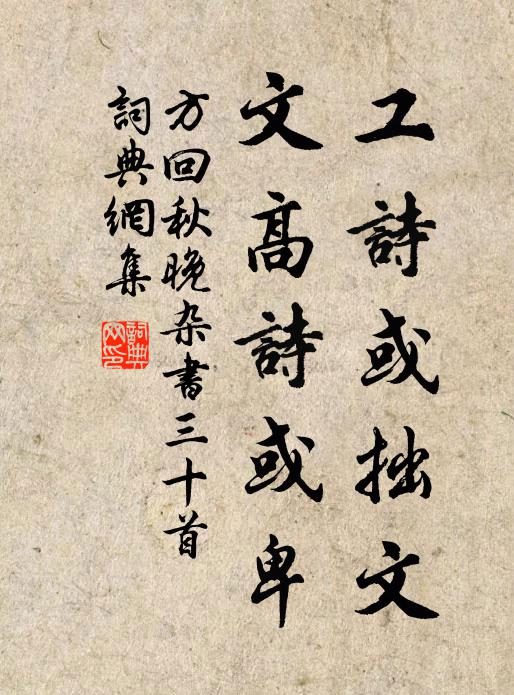 工詩或拙文
文高詩或卑
方回秋晚杂書三十首
詞典網集
詞典網印